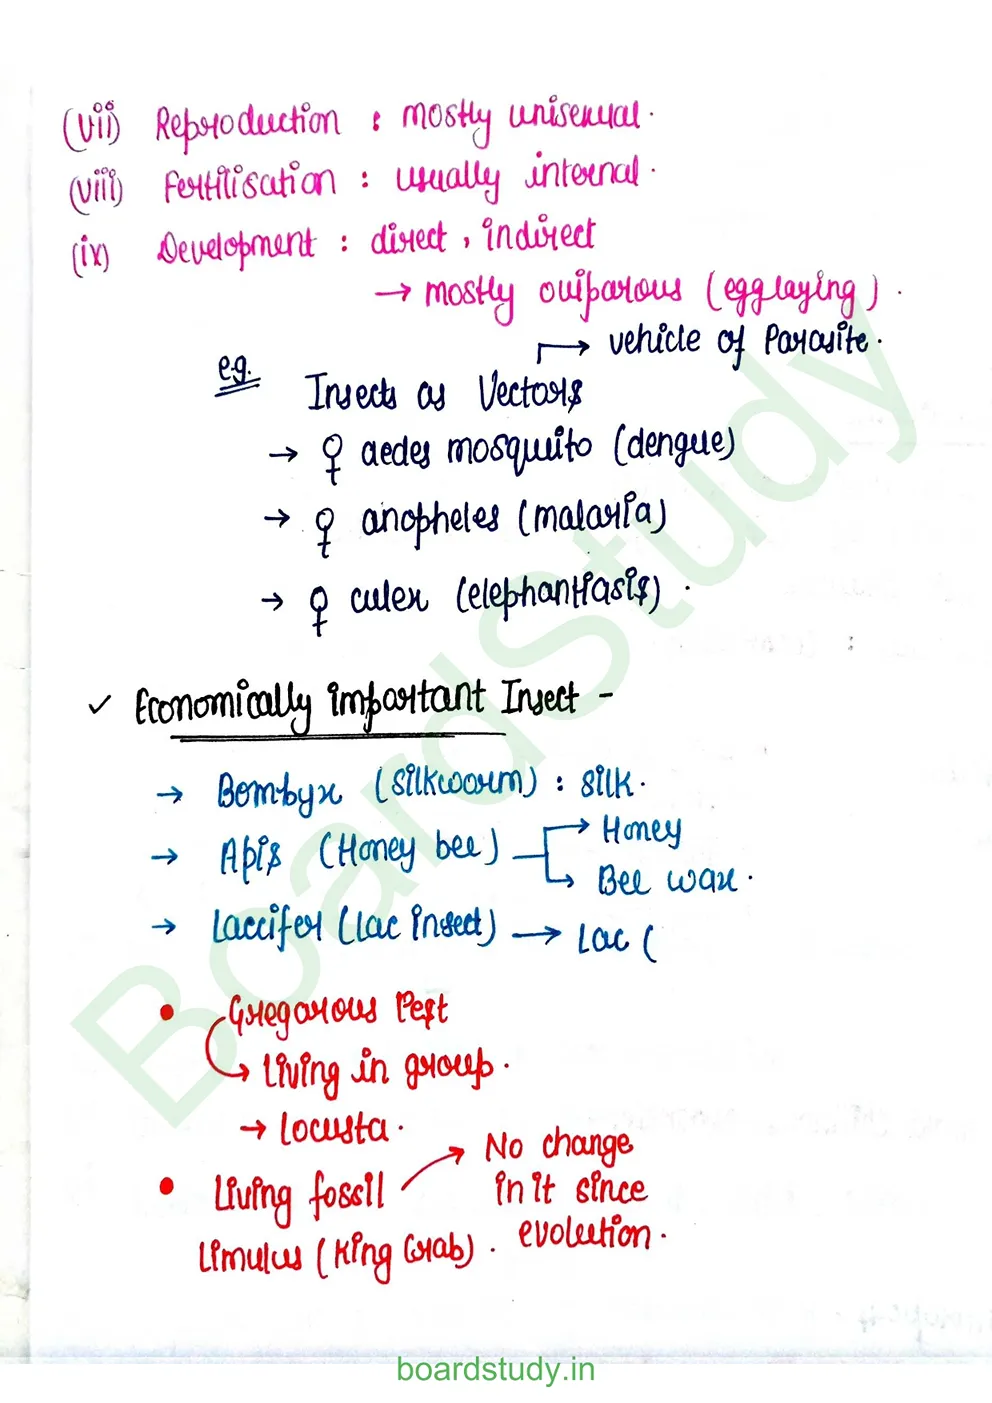 (vii) Reproduction : mostly unisexual.
(viii) Fertilisation : usually internal.
(ix) Development : direct, indirect
→ mostly oviparous (egg laying).
→ vehicle of Parasite.
e.g. Insects as Vectors
→ ♀ aedes mosquito (dengue)
→ ♀ anopheles (malaria)
→ ♀ culex (elephantiasis).
✓ Economically important Insect -
→ Bombyx (silkworm) : silk.
→ Apis (Honey bee) → Honey
→ Bee wax.
→ Laccifer (lac insect) → Lac (
• Gregarous Pest
→ living in group.
→ locusta.
• Living fossil → No change
in it since
evolution.
Limulus (King Crab).
BoardStudy
boardstudy.in